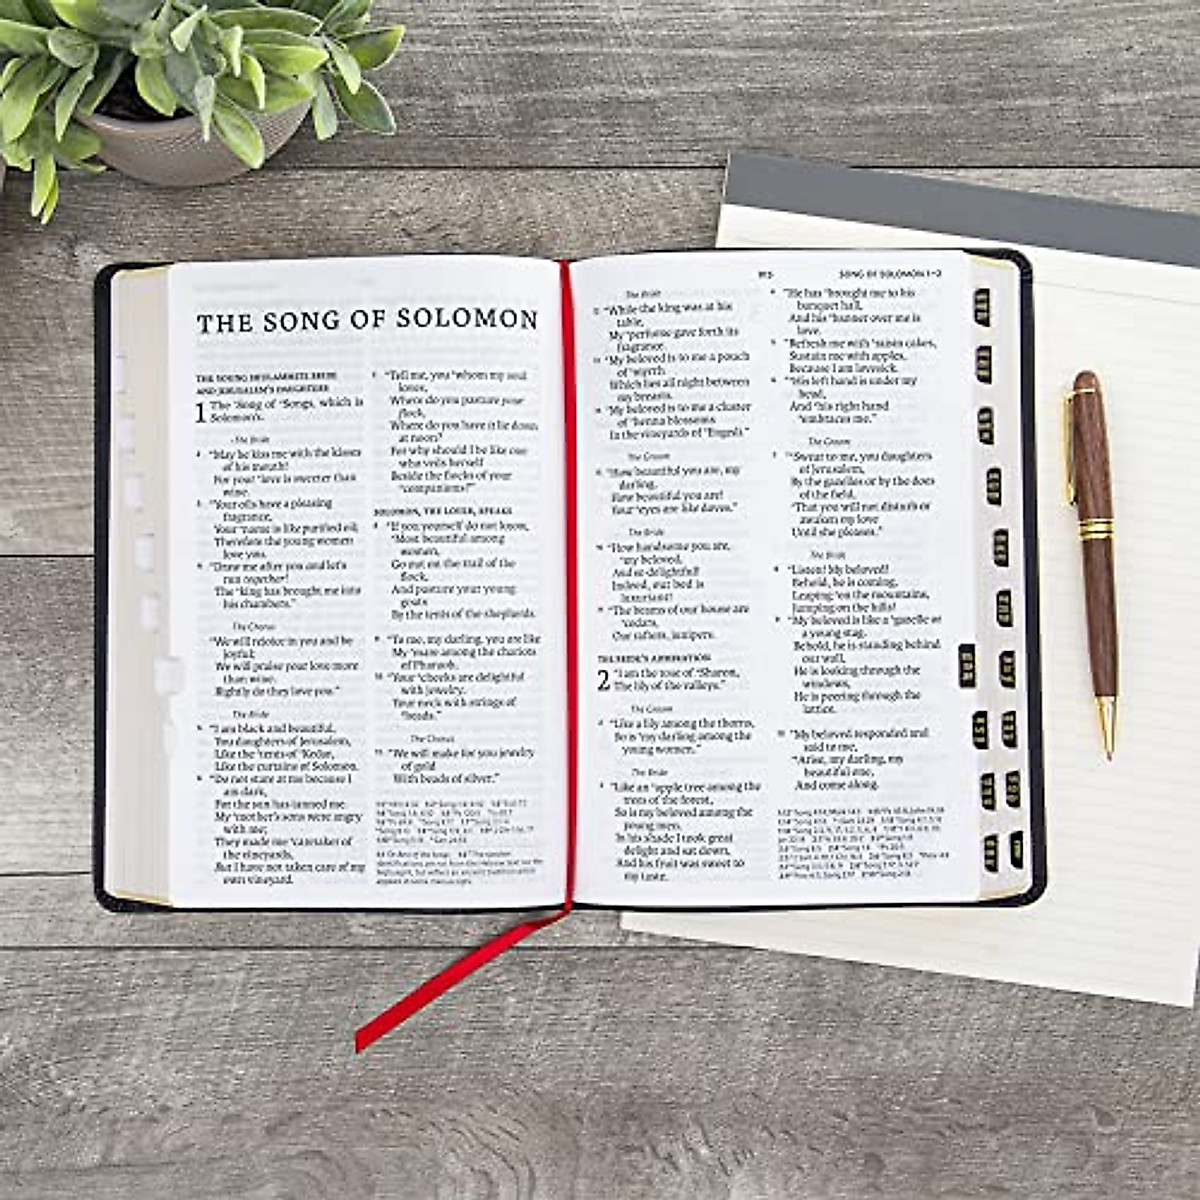 THE SONG OF SOLOMON
THE YOUNG SHULAMMITE BRIDE
AND JERUSALEM'S DAUGHTERS
1 The Song of Songs, which is
Solomon's.
The Bride
2 "May he kiss me with the kisses
of his mouth!
For your love is sweeter than
wine.
3 "Your oils have a pleasing
fragrance,
Your name is like purified oil;
Therefore the young women
love you.
4 "Draw me after you and let's
run together!
The king has brought me into
his chambers."
The Chorus
"We will rejoice in you and be
joyful;
We will praise your love more
than wine.
Rightly do they love you."
The Bride
5 "I am black and beautiful,
You daughters of Jerusalem,
Like the tents of Kedar,
Like the curtains of Solomon.
6 "Do not stare at me because I
am dark,
For the sun has tanned me.
My mother's sons were angry
with me;
They made me caretaker of
the vineyards,
But I have not taken care of my
own vineyard.
7 "Tell me, you whom my soul
loves,
Where do you pasture your
flock,
Where do you have it lie down
at noon?
For why should I be like one
who veils herself
Beside the flocks of your
companions?"
SOLOMON, THE LOVER, SPEAKS
8 "If you yourself do not know,
Most beautiful among
women,
Go out on the trail of the
flock,
And pasture your young
goats
By the tents of the shepherds.
9 "To me, my darling, you are like
My mare among the chariots
of Pharaoh.
10 "Your cheeks are delightful
with jewelry,
Your neck with strings of
beads."
The Chorus
11 "We will make for you jewelry
of gold
With beads of silver."
913 SONG OF SOLOMON 1–2
The Bride
12 "While the king was at his
table,
My perfume gave forth its
fragrance.
13 "My beloved is to me a pouch
of myrrh
Which lies all night between
my breasts.
14 "My beloved is to me a cluster
of henna blossoms
In the vineyards of Engedi."
The Groom
15 "How beautiful you are, my
darling,
How beautiful you are!
Your eyes are like doves."
The Bride
16 "How handsome you are,
my beloved,
And so delightful!
Indeed, our bed is
luxuriant!
17 "The beams of our house are
cedars,
Our rafters, junipers.
THE BRIDE'S ADMIRATION
2 "I am the rose of Sharon,
The lily of the valleys."
The Groom
2 "Like a lily among the thorns,
So is my darling among the
young women."
The Bride
3 "Like an apple tree among the
trees of the forest,
So is my beloved among the
young men.
In his shade I took great
delight and sat down,
And his fruit was sweet to
my taste.
4 "He has brought me to his
banquet hall,
And his banner over me is
love.
5 "Refresh me with raisin cakes,
Sustain me with apples,
Because I am lovesick.
6 "His left hand is under my
head,
And his right hand
embraces me."
The Groom
7 "Swear to me, you daughters
of Jerusalem,
By the gazelles or by the does
of the field,
That you will not disturb or
awaken my love
Until she pleases."
The Bride
8 "Listen! My beloved!
Behold, he is coming,
Leaping on the mountains,
Jumping on the hills!
9 "My beloved is like a gazelle or
a young stag.
Behold, he is standing behind
our wall,
He is looking through the
windows,
He is peering through the
lattice.
10 "My beloved responded and
said to me,
'Arise, my darling, my
beautiful one,
And come along.